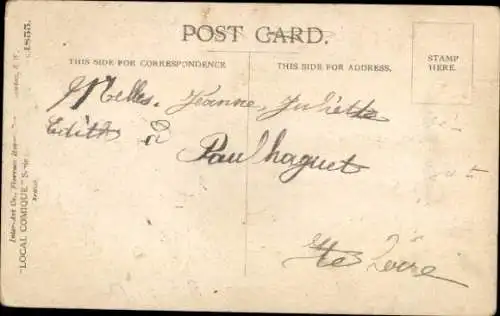 POST CARD.
THIS SIDE FOR CORRESPONDENCE
THIS SIDE FOR ADDRESS.
STAMP
HERE.
Melles. Jeanne, Juliette
Edith à
Paulhaguet
Hte Loire
Inter-Art Co., Florence
"LOCAL COMIQUE"
British
1855.